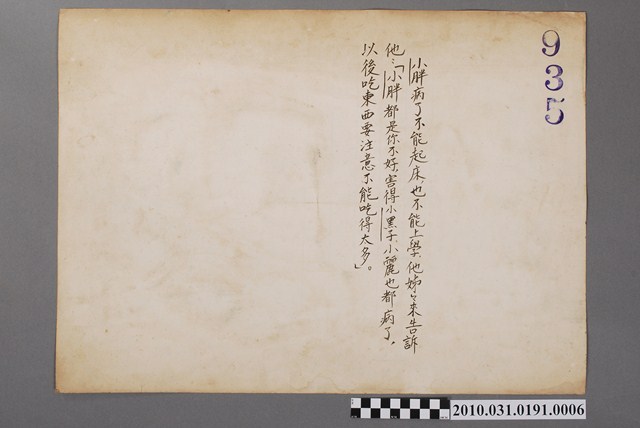 935
小胖病了不能起床,也不能上學,他姊〻來告訴
他:「小胖都是你不好,害得小黑子、小麗也都病了,
以後吃東西要注意不能吃得太多」。
2010.031.0191.0006